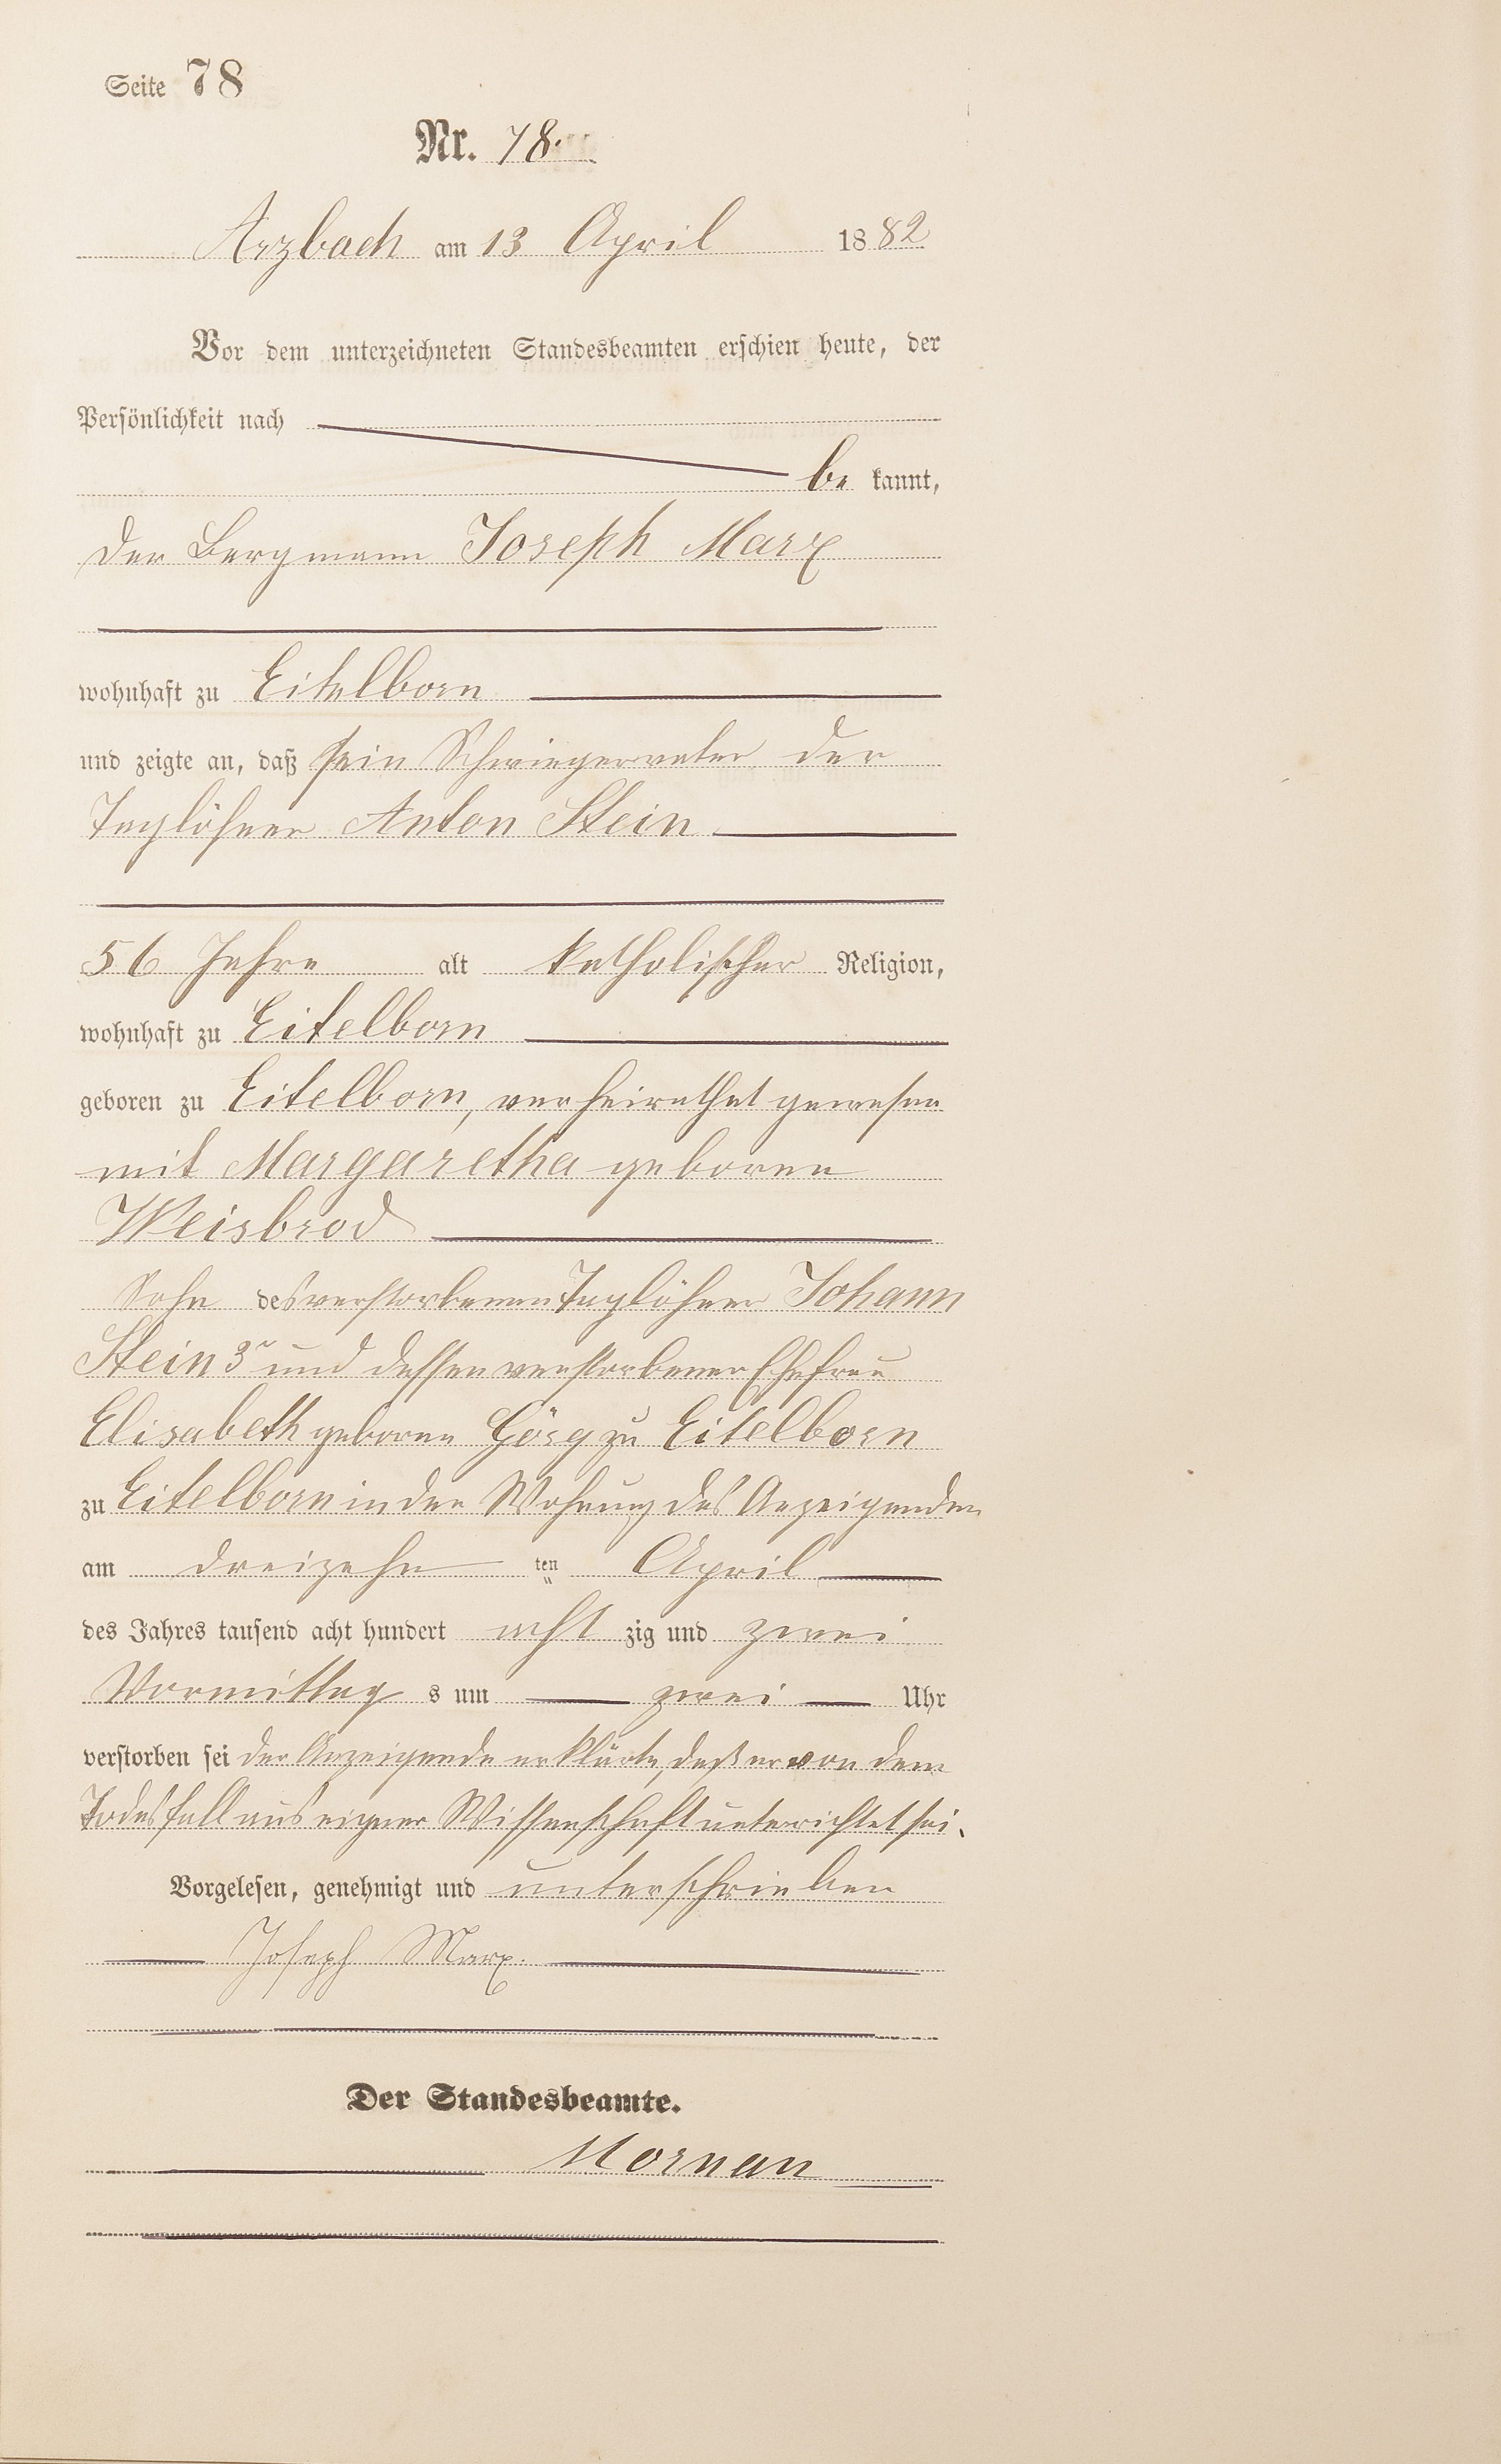 Seite 78
Nr. 78.
Arzbach am 13 April 1882
Vor dem unterzeichneten Standesbeamten erschien heute, der
Persönlichkeit nach
be kannt,
der Bergmann Joseph Marx
wohnhaft zu Eitelborn
und zeigte an, daß sein Schwiegervater der
Taglöhner Anton Stein
56 Jahre alt katholischer Religion,
wohnhaft zu Eitelborn
geboren zu Eitelborn, verheirathet gewesen
mit Margaretha geborene
Weisbrod
Sohn des verstorbenen Taglöhner Johann
Stein 3r und dessen verstorbener Ehefrau
Elisabeth geborene Görg zu Eitelborn
zu Eitelborn in der Wohnung des Anzeigenden
am dreizehn ten April
des Jahres tausend acht hundert acht zig und zwei
Vormittag s um zwei Uhr
verstorben sei der Anzeigende erklärte, daß er von dem
Todesfall aus eigner Wissenschaft unterrichtet sei.
Vorgelesen, genehmigt und unterschrieben
Joseph Marx.
Der Standesbeamte.